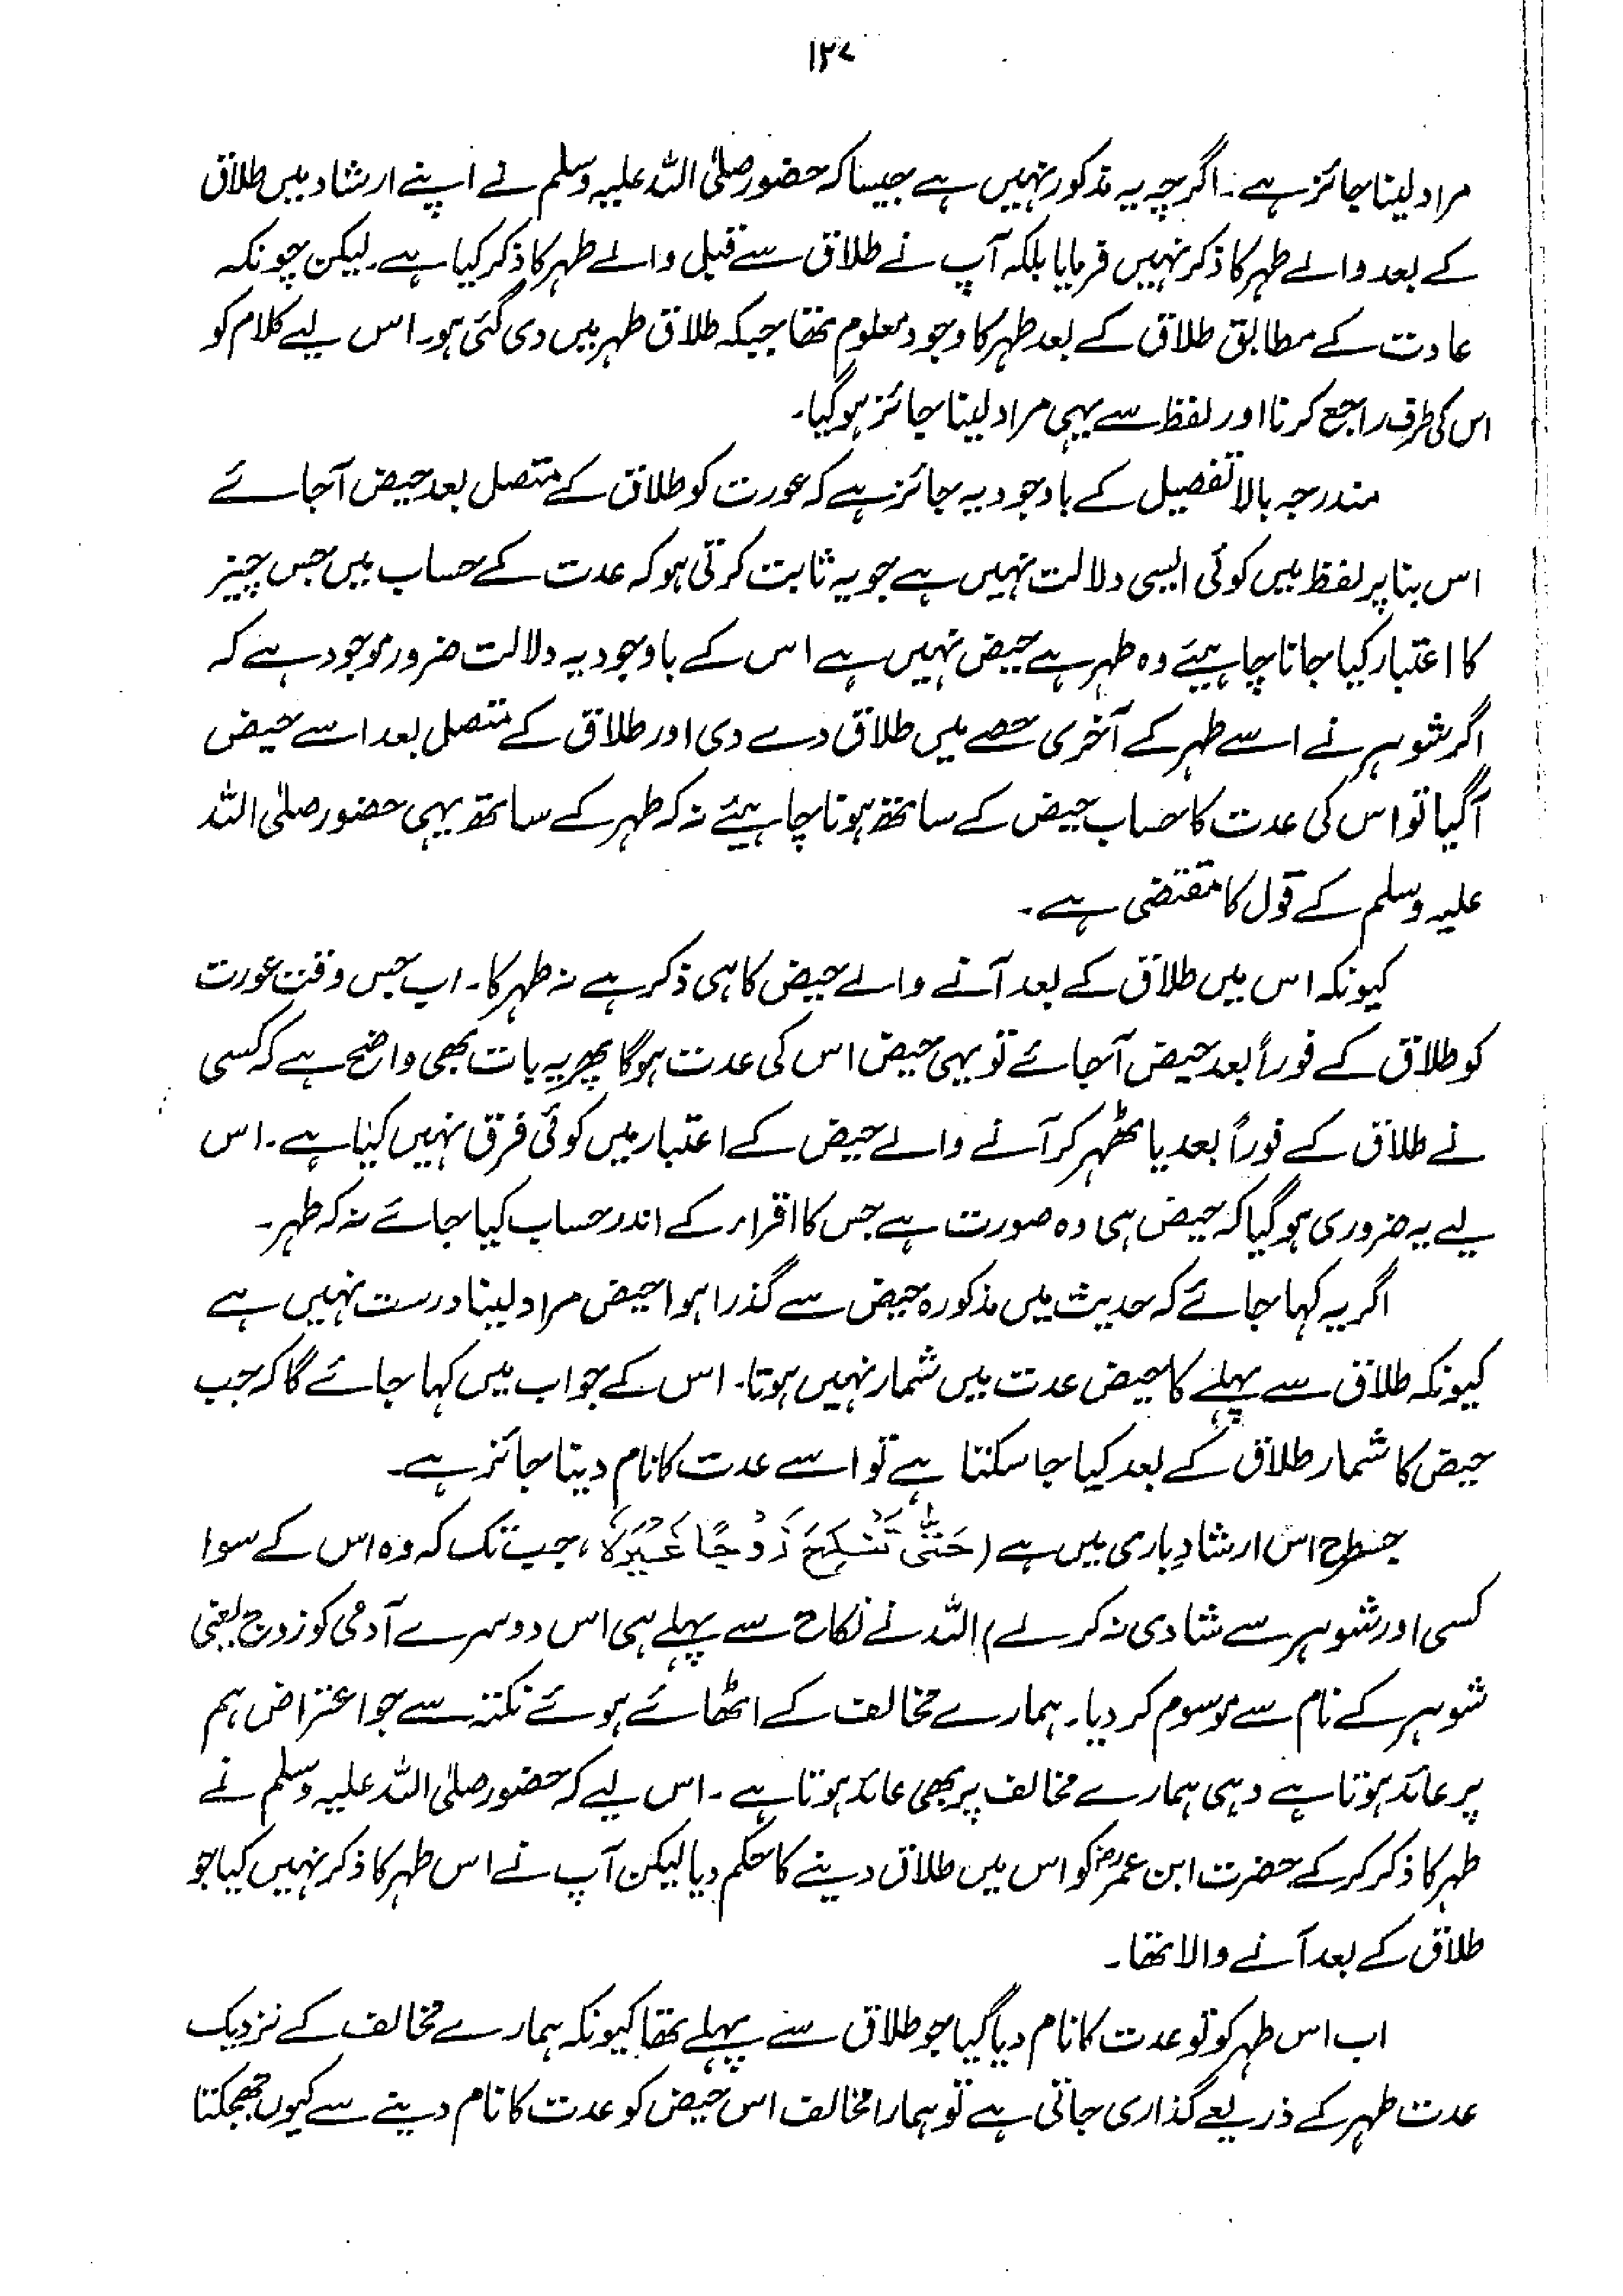 ۱۲۷
مراد لینا جائز ہے۔ اگرچہ یہ مذکور نہیں ہے جیسا کہ حضور صلی اللہ علیہ وسلم نے اپنے ارشاد میں طلاق
کے بعد والے طہر کا ذکر نہیں فرمایا بلکہ آپ نے طلاق سے قبل والے طہر کا ذکر کیا ہے۔ لیکن چونکہ
عادت کے مطابق طلاق کے بعد طہر کا وجود معلوم تھا جبکہ طلاق طہر میں دی گئی ہو۔ اس لیے کلام کو
اس کی طرف راجع کرنا اور لفظ سے یہی مراد لینا جائز ہو گیا۔
مندرجہ بالا تفصیل کے باوجود یہ جائز ہے کہ عورت کو طلاق کے متصل بعد حیض آجائے
اس بنا پر لفظ میں کوئی ایسی دلالت نہیں ہے جو یہ ثابت کرتی ہو کہ عدت کے حساب میں جس چیز
کا اعتبار کیا جانا چاہیئے وہ طہر ہے حیض نہیں ہے اس کے باوجود یہ دلالت ضرور موجود ہے کہ
اگر شوہر نے اسے طہر کے آخری حصے میں طلاق دے دی اور طلاق کے متصل بعد اسے حیض
آگیا تو اس کی عدت کا حساب حیض کے ساتھ ہونا چاہیئے نہ کہ طہر کے ساتھ یہی حضور صلی اللہ
علیہ وسلم کے قول کا مقتضی ہے۔
کیونکہ اس میں طلاق کے بعد آنے والے حیض کا ہی ذکر ہے نہ طہر کا۔ اب جس وقت عورت
کو طلاق کے فوراً بعد حیض آجائے تو یہی حیض اس کی عدت ہوگا پھر یہ بات بھی واضح ہے کہ کسی
نے طلاق کے فوراً بعد یا ٹھہر کر آنے والے حیض کے اعتبار میں کوئی فرق نہیں کیا ہے۔ اس
لیے یہ ضروری ہو گیا کہ حیض ہی وہ صورت ہے جس کا اقراء کے اندر حساب کیا جائے نہ کہ طہر۔
اگر یہ کہا جائے کہ حدیث میں مذکورہ حیض سے گذرا ہوا حیض مراد لینا درست نہیں ہے
کیونکہ طلاق سے پہلے کا حیض عدت میں شمار نہیں ہوتا۔ اس کے جواب میں کہا جائے گا کہ جب
حیض کا شمار طلاق کے بعد کیا جا سکتا ہے تو اسے عدت کا نام دینا جائز ہے۔
جسطرح اس ارشادِ باری میں ہے (حَتّٰى تَنْكِحَ زَوْجًا غَيْرَهٗ، جب تک کہ وہ اس کے سوا
کسی اور شوہر سے شادی نہ کر لے) اللہ نے نکاح سے پہلے ہی اس دوسرے آدمی کو زوج یعنی
شوہر کے نام سے موسوم کر دیا۔ ہمارے مخالف کے اٹھائے ہوئے نکتہ سے جو اعتراض ہم
پر عائد ہوتا ہے وہی ہمارے مخالف پر بھی عائد ہوتا ہے۔ اس لیے کہ حضور صلی اللہ علیہ وسلم نے
طہر کا ذکر کر کے حضرت ابن عمرؓ کو اس میں طلاق دینے کا حکم دیا لیکن آپ نے اس طہر کا ذکر نہیں کیا جو
طلاق کے بعد آنے والا تھا۔
اب اس طہر کو تو عدت کا نام دیا گیا جو طلاق سے پہلے تھا کیونکہ ہمارے مخالف کے نزدیک
عدت طہر کے ذریعے گذاری جاتی ہے تو ہمارا مخالف اس حیض کو عدت کا نام دینے سے کیوں جھجکتا